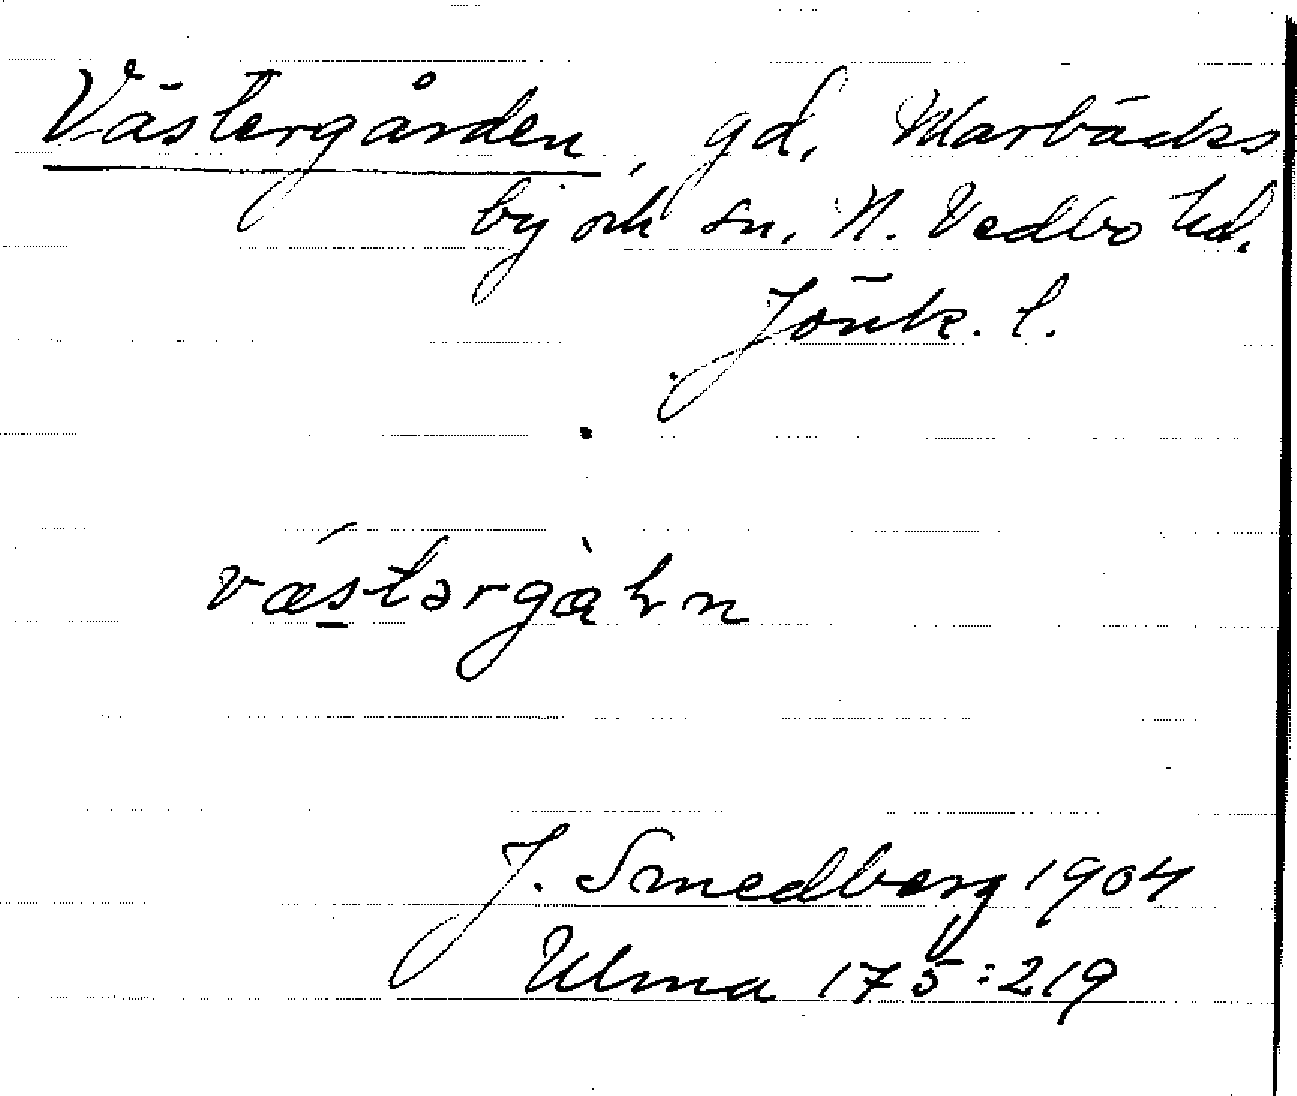 Västergården, gd, Marbäcks
by och sn, N. Vedbo hd.
Jönk. l.
væstərgàhn
J. Smedberg 1904
Ulma 175:219